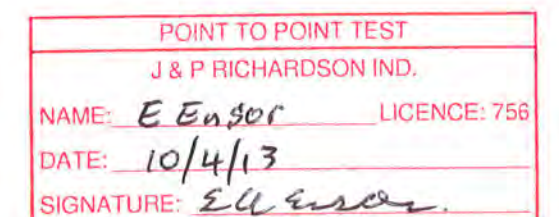 POINT TO POINT TEST
J & P RICHARDSON IND.
NAME: E Ensor LICENCE: 756
DATE: 10/4/13
SIGNATURE: